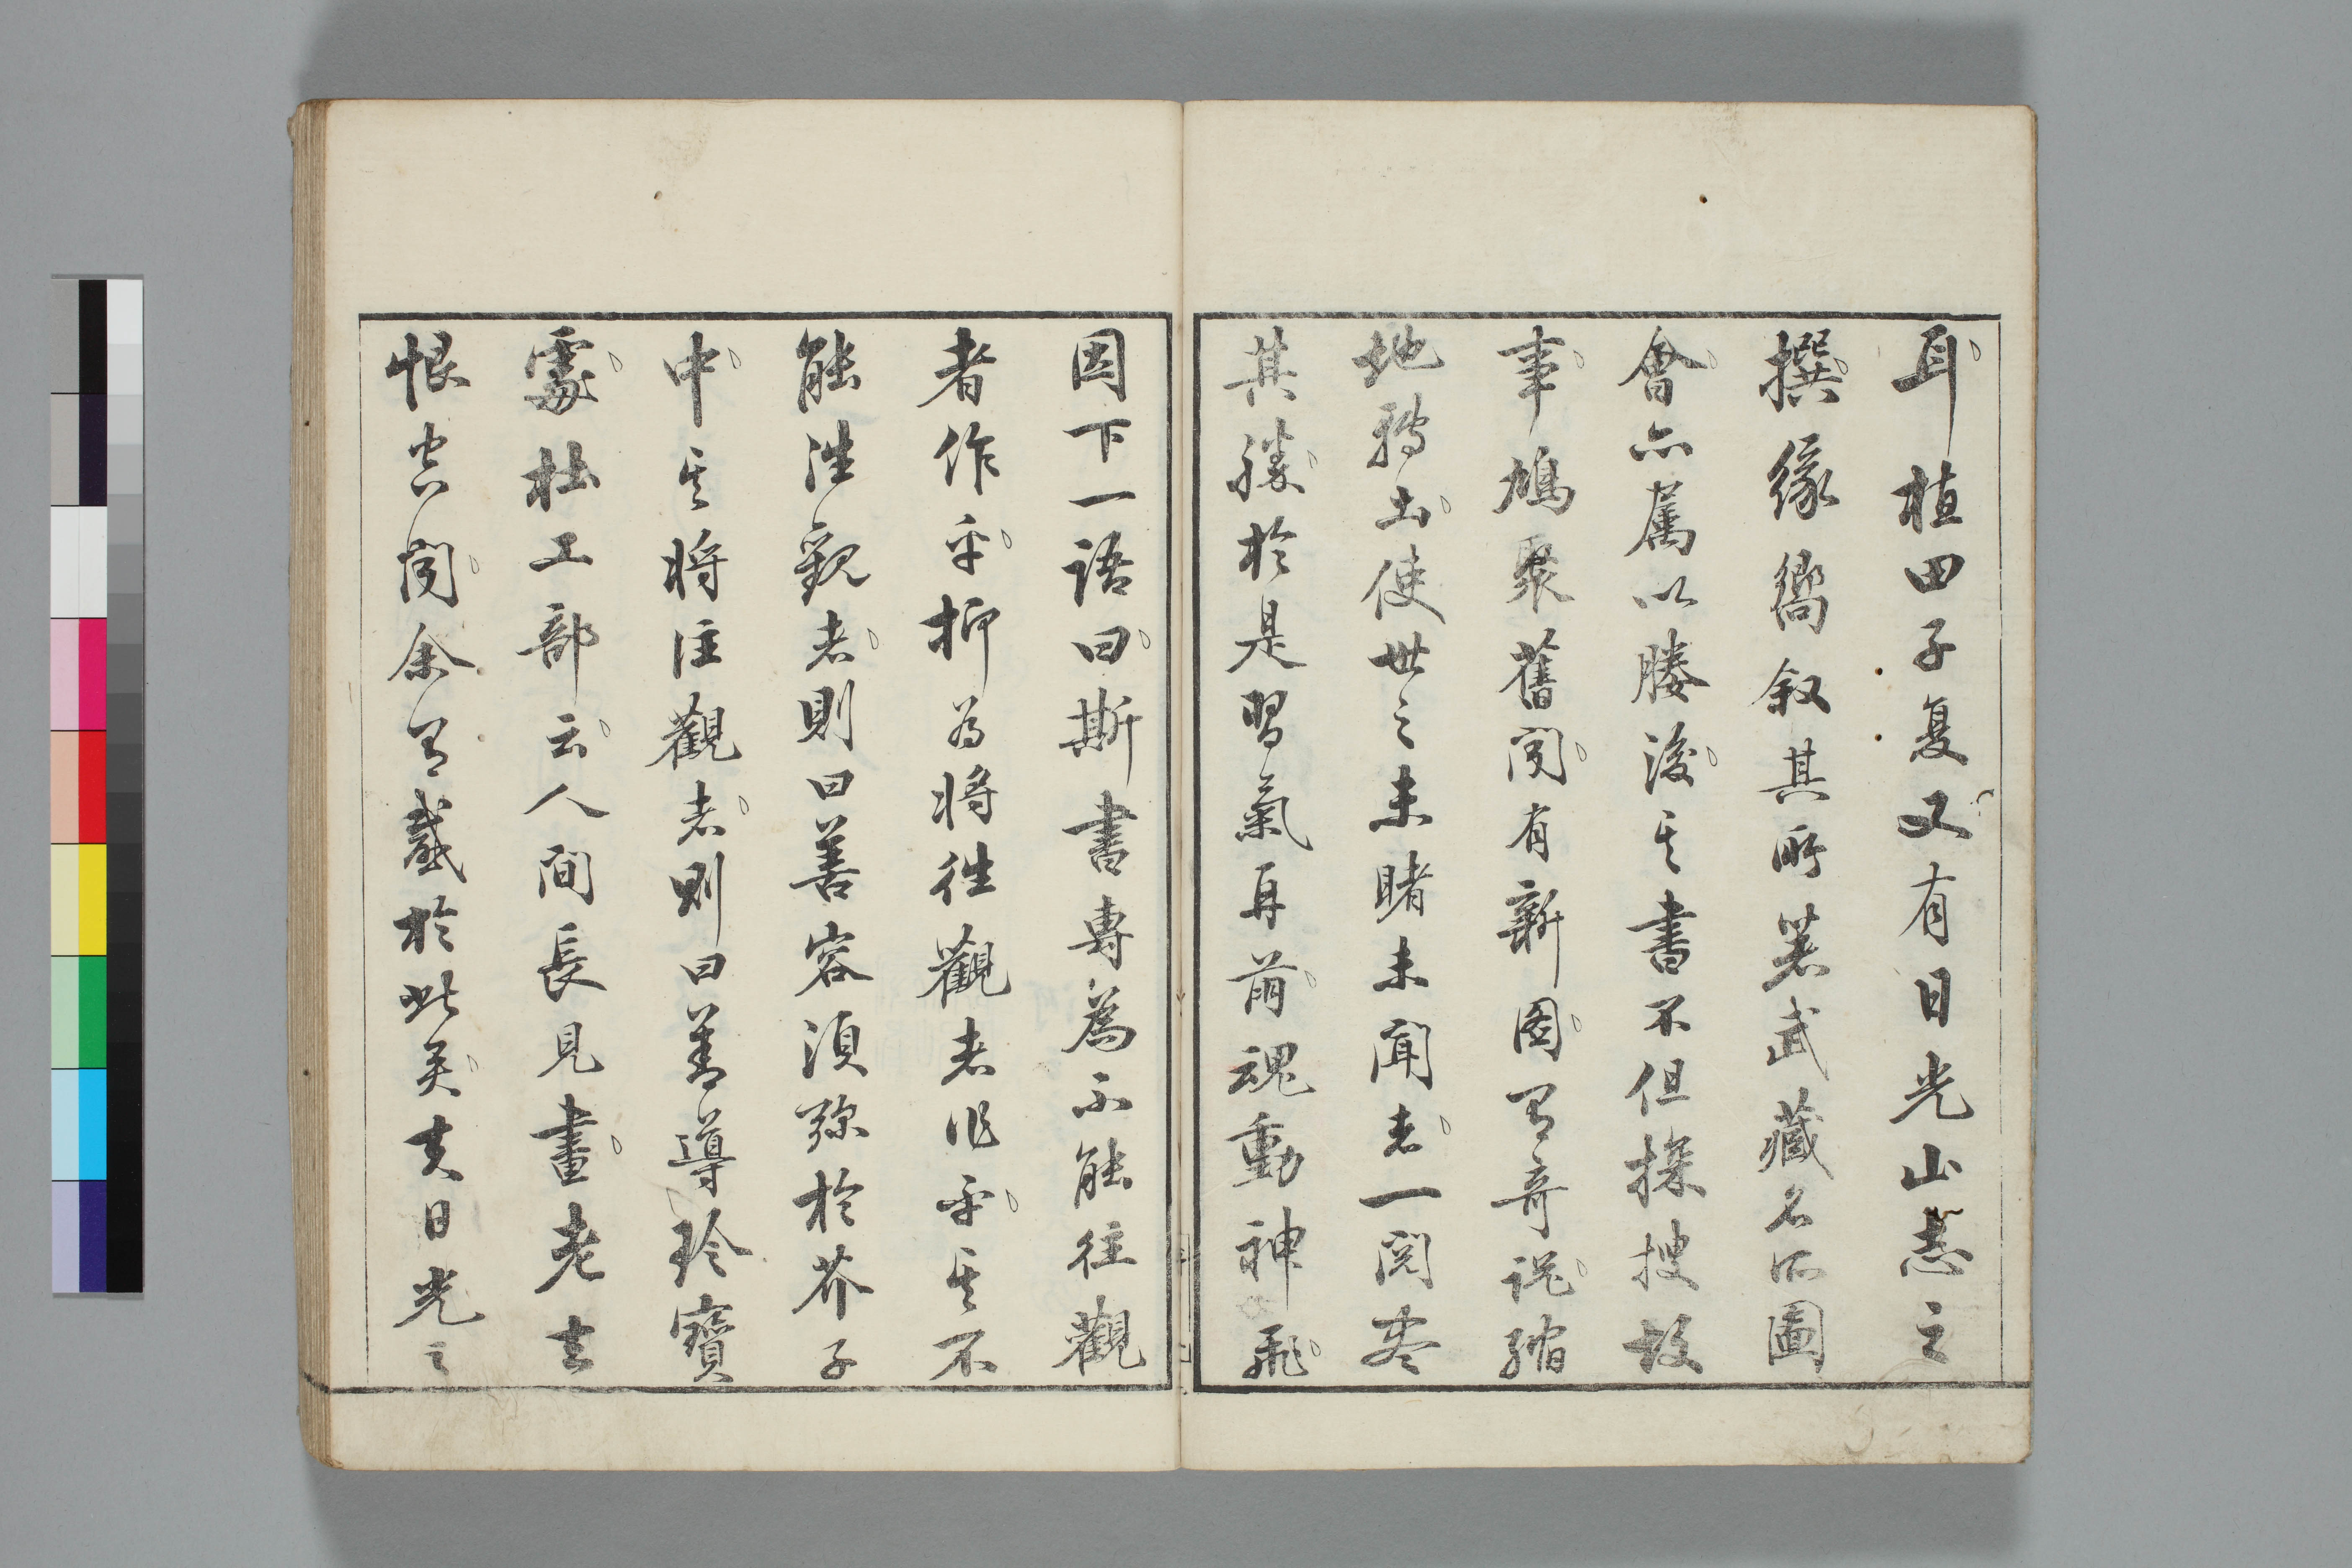 耳植田子夏又有日光山志之
撰緣嚮叙其所著武藏名所圖
會亦屬以媵後其書不但探搜故
事鳩聚舊聞有新圖有奇說縮
地移出使世之未睹未聞者一閱
其勝於是習氣再萌魂動神飛
因下一語曰斯書專為不能往觀
者作乎抑為將往觀者作乎其不
能往觀者則曰善容須弥於芥子
中其將往觀者則曰善導於寶
處杜工部云人間長見畫老去
恨空聞余有感於此矣夫日光之